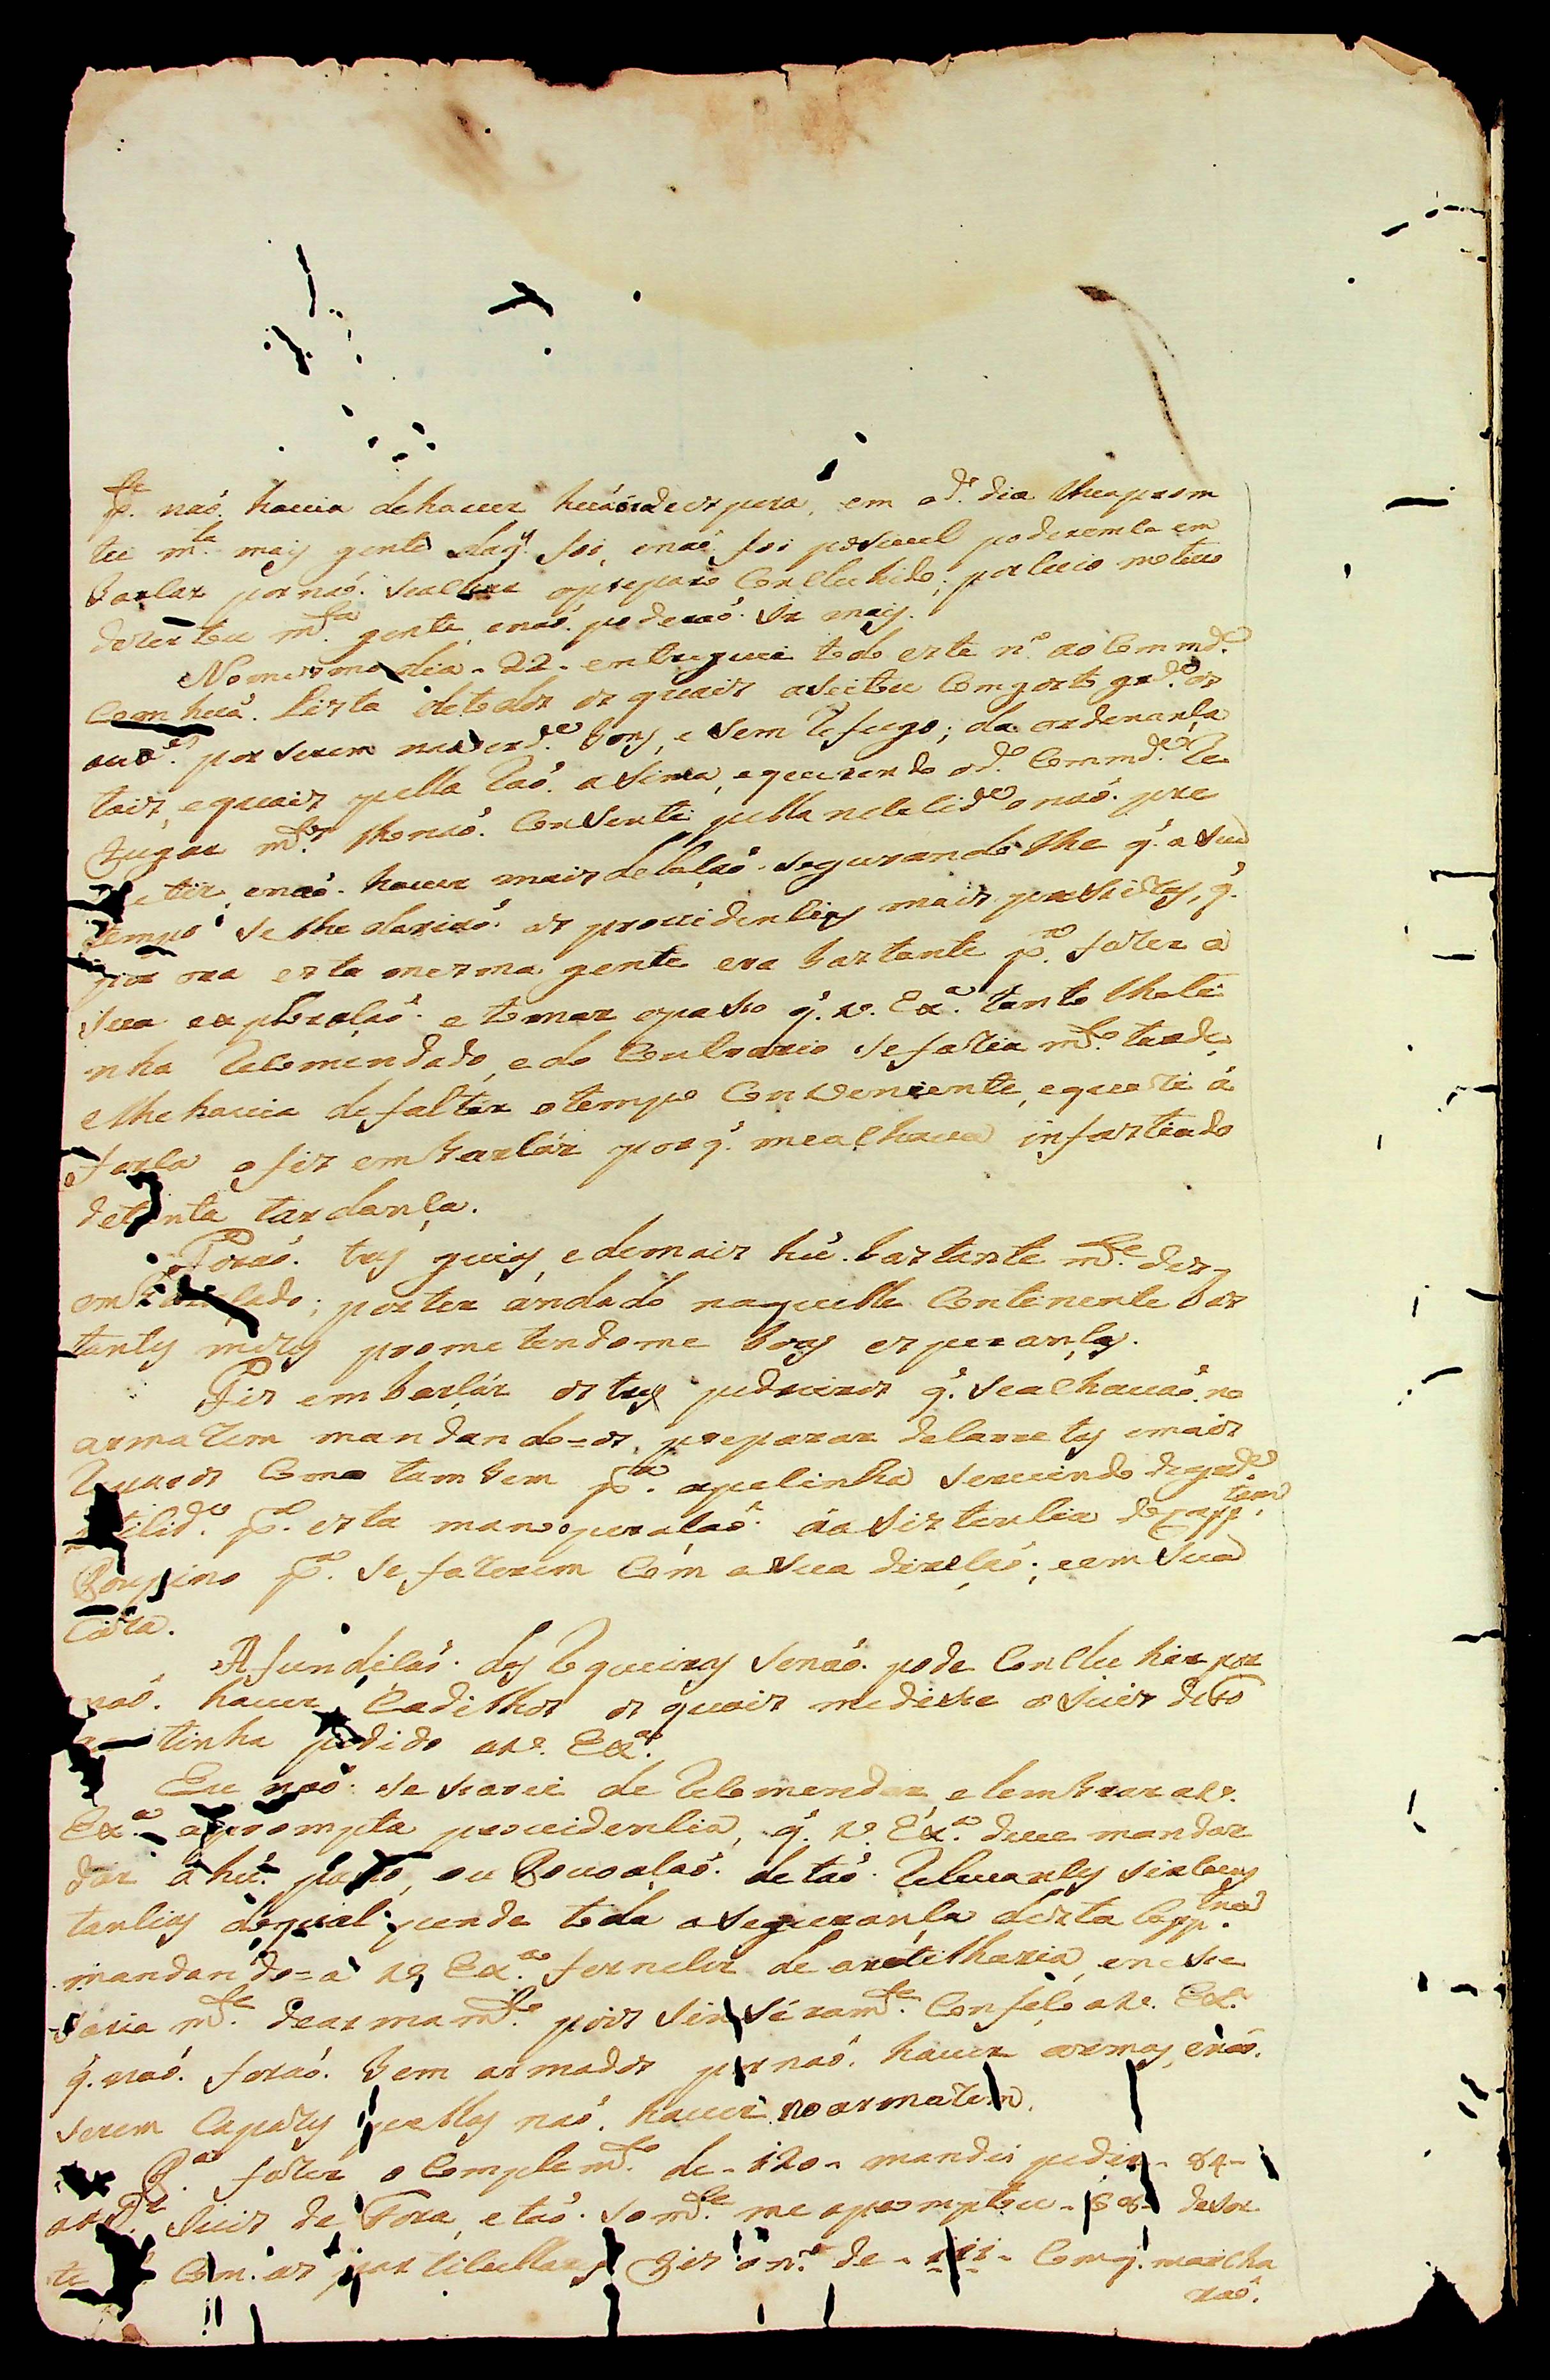 p.te naõ havia de haver huã de espera, em o d.o dia lhe aprom
tei m.ta mais gente do q' foi, e naõ foi posivel poderem la em
barcar por naõ se achar o preparo concluhido; por cuio motivo
desertou m.ta gente, e naõ poderaõ ir mais.
No mesmo dia - 22 - entreguei todo este n.o ao Comm.de
com huã Lista de todos os quais aseitou com gosto gr.de os
por serem na verd.e bons, e sem refugo; da ordenança
tais, e quais pella razaõ a sima, e querendo o d.o Comm.de re
fugar m.tos lhe naõ consenti pella nesesid.e o naõ per
metir, e naõ haver mais delaçaõ segurandolhe q' a seu
tempo se lhe dariaõ as providencias mais persizas, q'
por ora esta mesma gente era bastante p.a fazer a
sua exploraçaõ e tomar o paso q' V. Ex.a tanto lhe ti
nha recomendado, e do contrario se fazia m.to tarde,
e lhe havia de faltar o tempo conveniente, e quazi á
forsa o fis embarcár por q' me achava infastiado
de tanta tardança.
Foraõ tres guias, e demais hũ bastante m.te des
embaraçado; por ter andado naquelle continente bas
tantes mezes prometendome boas esperanças.
Fis embarcár os tres pedreiros q' se achavaõ no
armazem mandando=os preparar de carretes e mais
reparos como tambem p.a a pecinha servindo de gr.de
utilid.e p.a esta manoperaçaõ áasistencia do Cap.tam
Roupino p.a se fazerem com a sua direcçaõ; e em sua
caza.
A fundiçaõ das roqueiras se naõ pode concluhir por
naõ haver cadilhos os quais me disse o Juis de Fo
ra tinha pedido a V. Ex.a
Eu naõ sesarei de recomendar, e lembrar a V.
Ex.a a prompta providencia, q' V. Ex.a deve mandar
dar a hũ paso, ou Povoaçaõ de taõ relevantes sircuns
tancias do qual pende toda a segurança desta Capp.tnia
mandando=a V. Ex.a fornecer de artelharia, e nese
saria m.te de armam.to pois sinséram.te confeso a V. Ex.a
q' naõ foraõ bem armados por naõ haver armas, e naõ
serem capazes pellas naõ haver no armazem.
P.a fazer o complem.to de - 120 - mandei pedir - 84 -
ao D.r Juis de Fora, e taõ som.te me apromptou - 58 - de sor
te q' com os particullares fis o n.o de - 111 - com q' marcha
raõ.